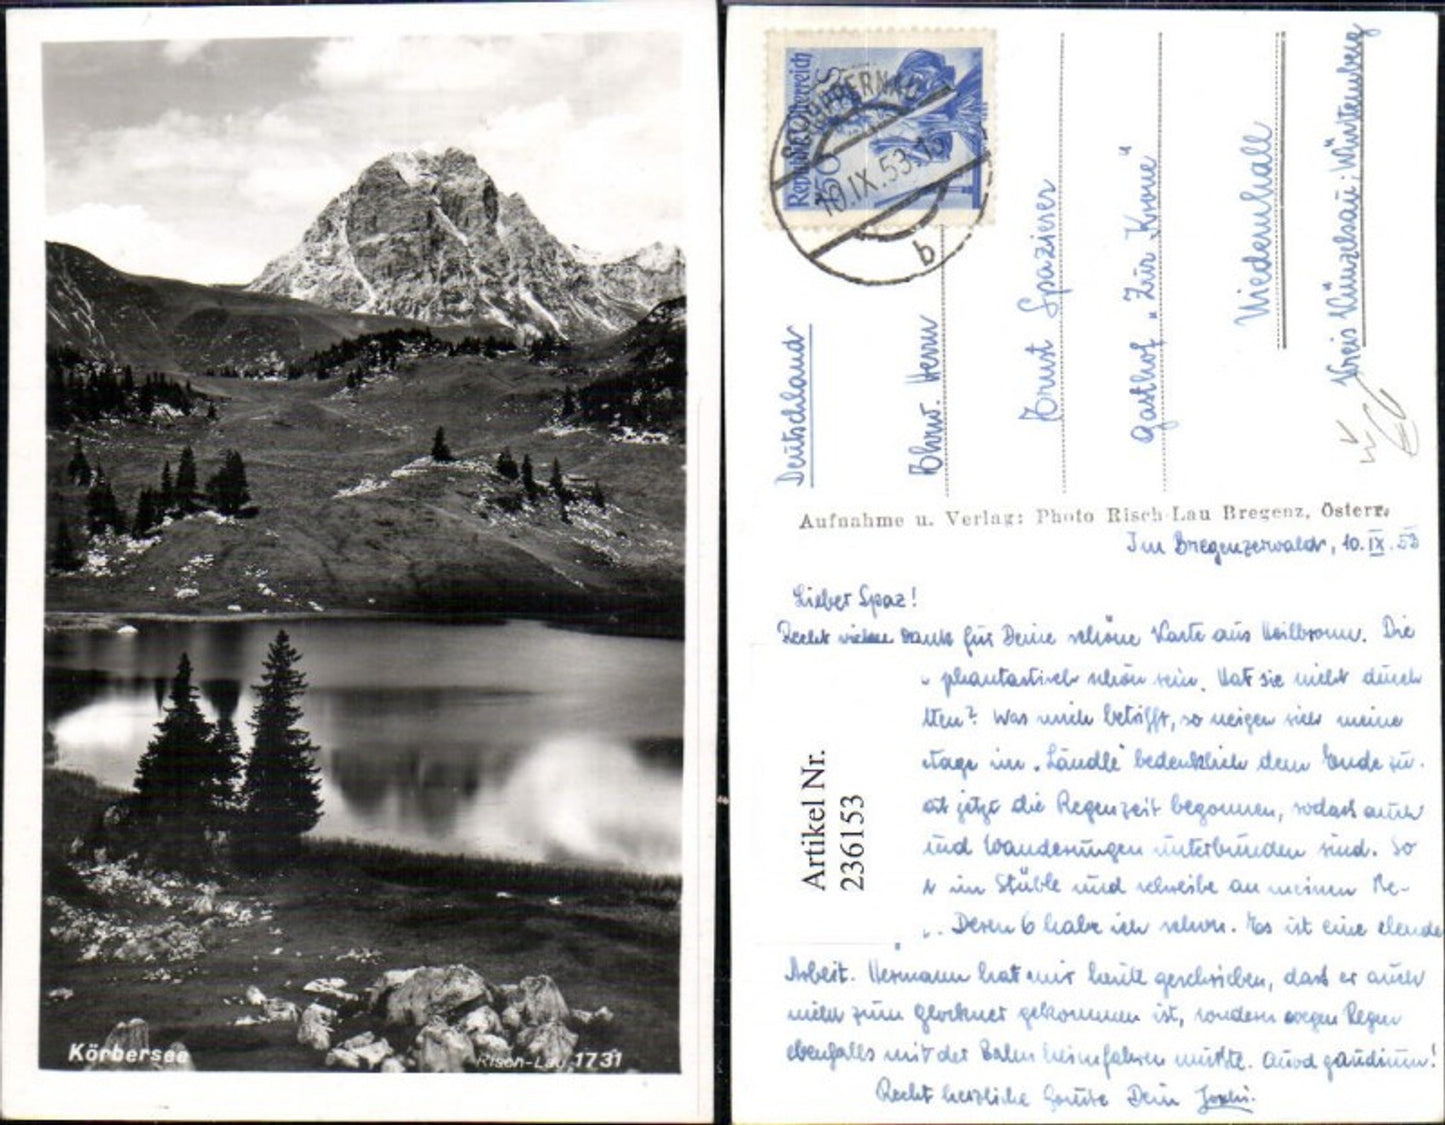 Körbersee
Risch-Lau 1731
Republik Österreich
SCHOPPERNAU
10.IX.53
b
Deutschland
Herrn
Ernst Spazierer
Gasthof „Zur Krone"
Niedenhall
Kreis Künzelsau: Württemberg
Aufnahme u. Verlag: Photo Risch-Lau Bregenz, Österr.
Im Bregenzerwald, 10. IX. 53
Lieber Spaz!
Recht vielen Dank für Deine schöne Karte aus Heilbronn. Die
phantastisch schön sein. Hat sie nicht durch
tten? Was mich betrifft, so neigen sich meine
etage im „Ländle" bedenklich dem Ende zu.
at jetzt die Regenzeit begonnen, sodass auch
und Wanderungen unterbunden sind. So
im Stüble und schreibe an meinen Re-
Deren 6 habe ich schon. Es ist eine elende
Arbeit. Hermann hat mir heute geschrieben, dass er auch
nicht zum Glockner gekommen ist, sondern wegen Regen
ebenfalls mit der Bahn heimfahren musste. Quod gaudium!
Recht herzliche Grüsse Dein
Artikel Nr.
236153